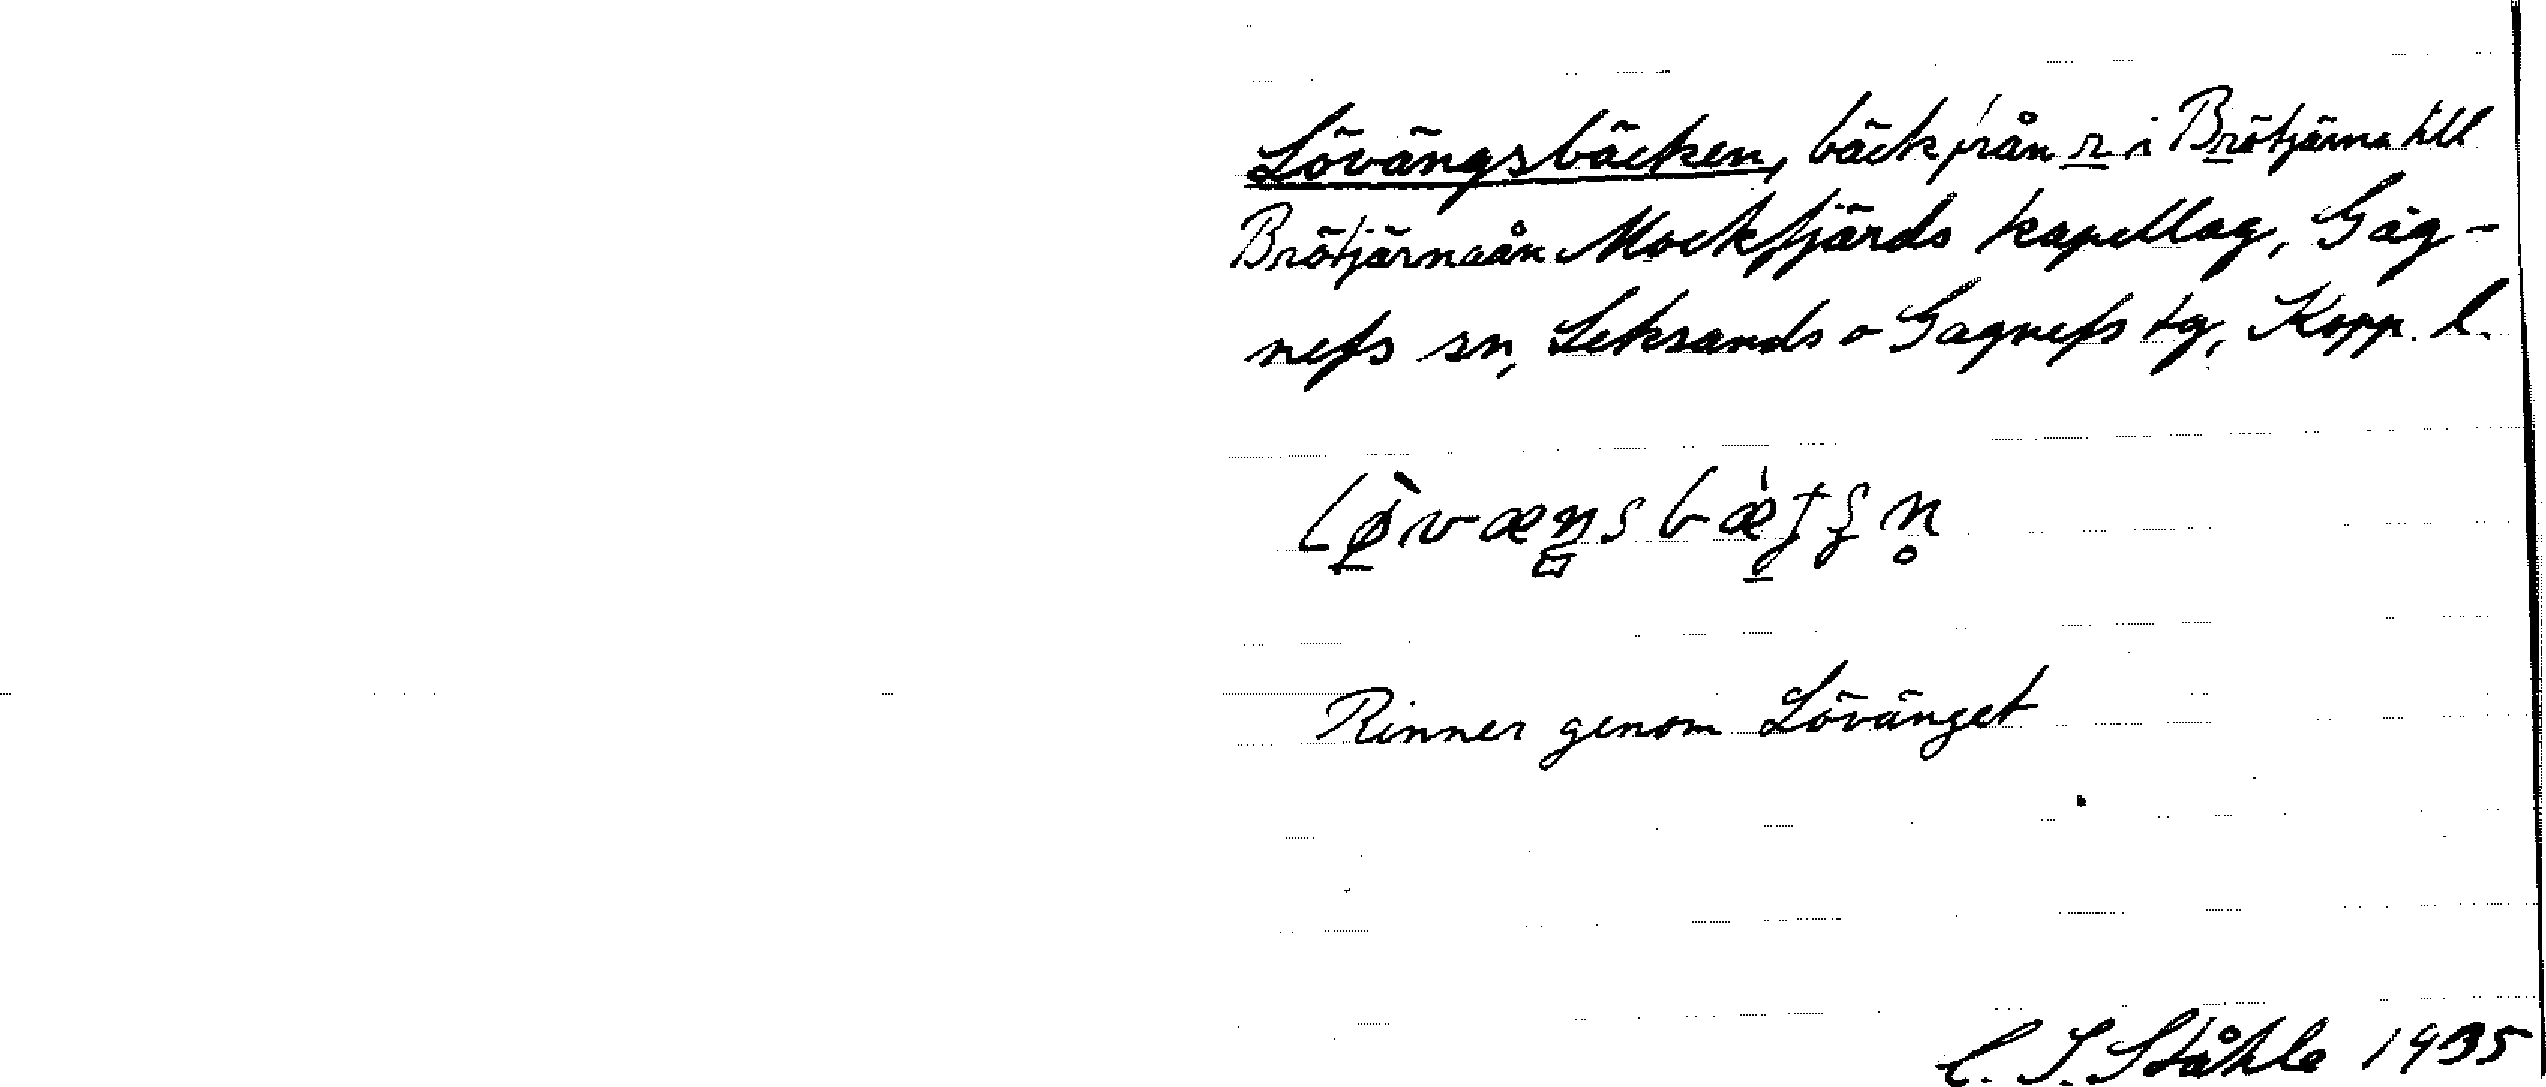 Lövängsbäcken, bäck från n i Brötjärna till
Brötjärnaån Mockfjärds kapellag, Gag-
nefs sn, Leksands o Gagnefs tg, Kopp. l.
Rinner genom Lövänget
C. I. Ståhle 1935